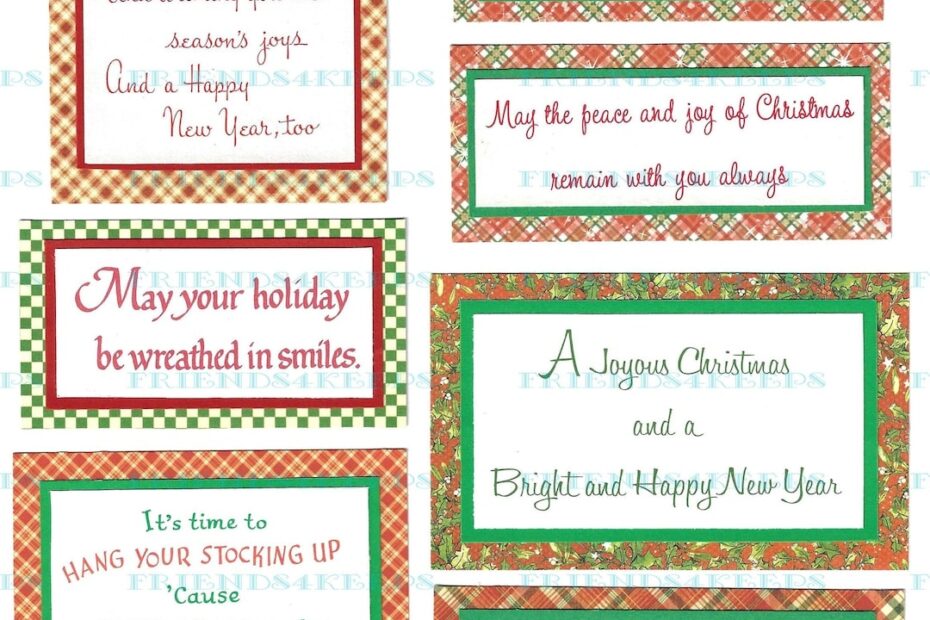 season's joys
And a Happy
New Year, too
May your holiday
be wreathed in smiles.
It's time to
HANG YOUR STOCKING UP
'Cause
May the peace and joy of Christmas
remain with you always
A Joyous Christmas
and a
Bright and Happy New Year
FRIENDS4KEEPS